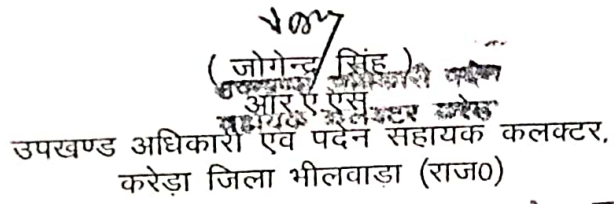 ( जोगेन्द्र सिंह )
आर.ए.एस.
उपखण्ड अधिकारी एवं पदेन सहायक कलक्टर,
करेड़ा जिला भीलवाड़ा (राज0)